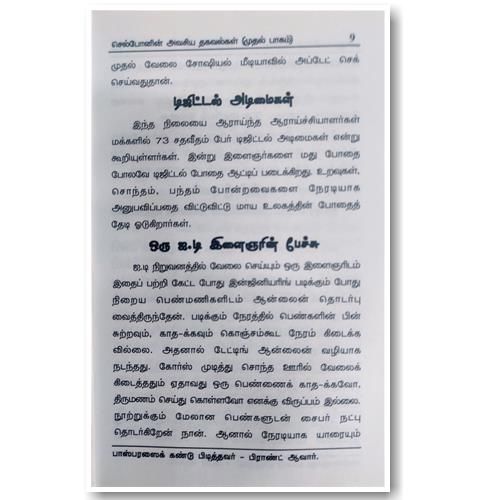 செல்போனின் அவசிய தகவல்கள் (முதல் பாகம்) 9
முதல் வேலை சோஷியல் மீடியாவில் அப்டேட் செக்
செய்வதுதான்.
டிஜிட்டல் அடிமைகள்
இந்த நிலையை ஆராய்ந்த ஆராய்ச்சியாளர்கள்
மக்களில் 73 சதவீதம் பேர் டிஜிட்டல் அடிமைகள் என்று
கூறியுள்ளார்கள். இன்று இளைஞர்களை மது போதை
போலவே டிஜிட்டல் போதை ஆட்டிப் படைக்கிறது. உறவுகள்,
சொந்தம், பந்தம் போன்றவைகளை நேரடியாக
அனுபவிப்பதை விட்டுவிட்டு மாய உலகத்தின் போதைத்
தேடி ஓடுகிறார்கள்.
ஒரு ஐ.டி இளைஞரின் பேச்சு
ஐ.டி நிறுவனத்தில் வேலை செய்யும் ஒரு இளைஞரிடம்
இதைப் பற்றி கேட்ட போது இன்ஜினியரிங் படிக்கும் போது
நிறைய பெண்மணிகளிடம் ஆன்லைன் தொடர்பு
வைத்திருந்தேன். படிக்கும் நேரத்தில் பெண்களின் பின்
சுற்றவும், காத-க்கவும் கொஞ்சம்கூட நேரம் கிடைக்க
வில்லை. அதனால் டேட்டிங் ஆன்லைன் வழியாக
நடந்தது. கோர்ஸ் முடித்து சொந்த ஊரில் வேலைக்
கிடைத்ததும் ஏதாவது ஒரு பெண்ணைக் காத-க்கவோ,
திருமணம் செய்து கொள்ளவோ எனக்கு விருப்பம் இல்லை.
நூற்றுக்கும் மேலான பெண்களுடன் சைபர் நட்பு
தொடர்கிறேன் நான். ஆனால் நேரடியாக யாரையும்
பாஸ்பரஸைக் கண்டு பிடித்தவர் - பிராண்ட் ஆவார்.